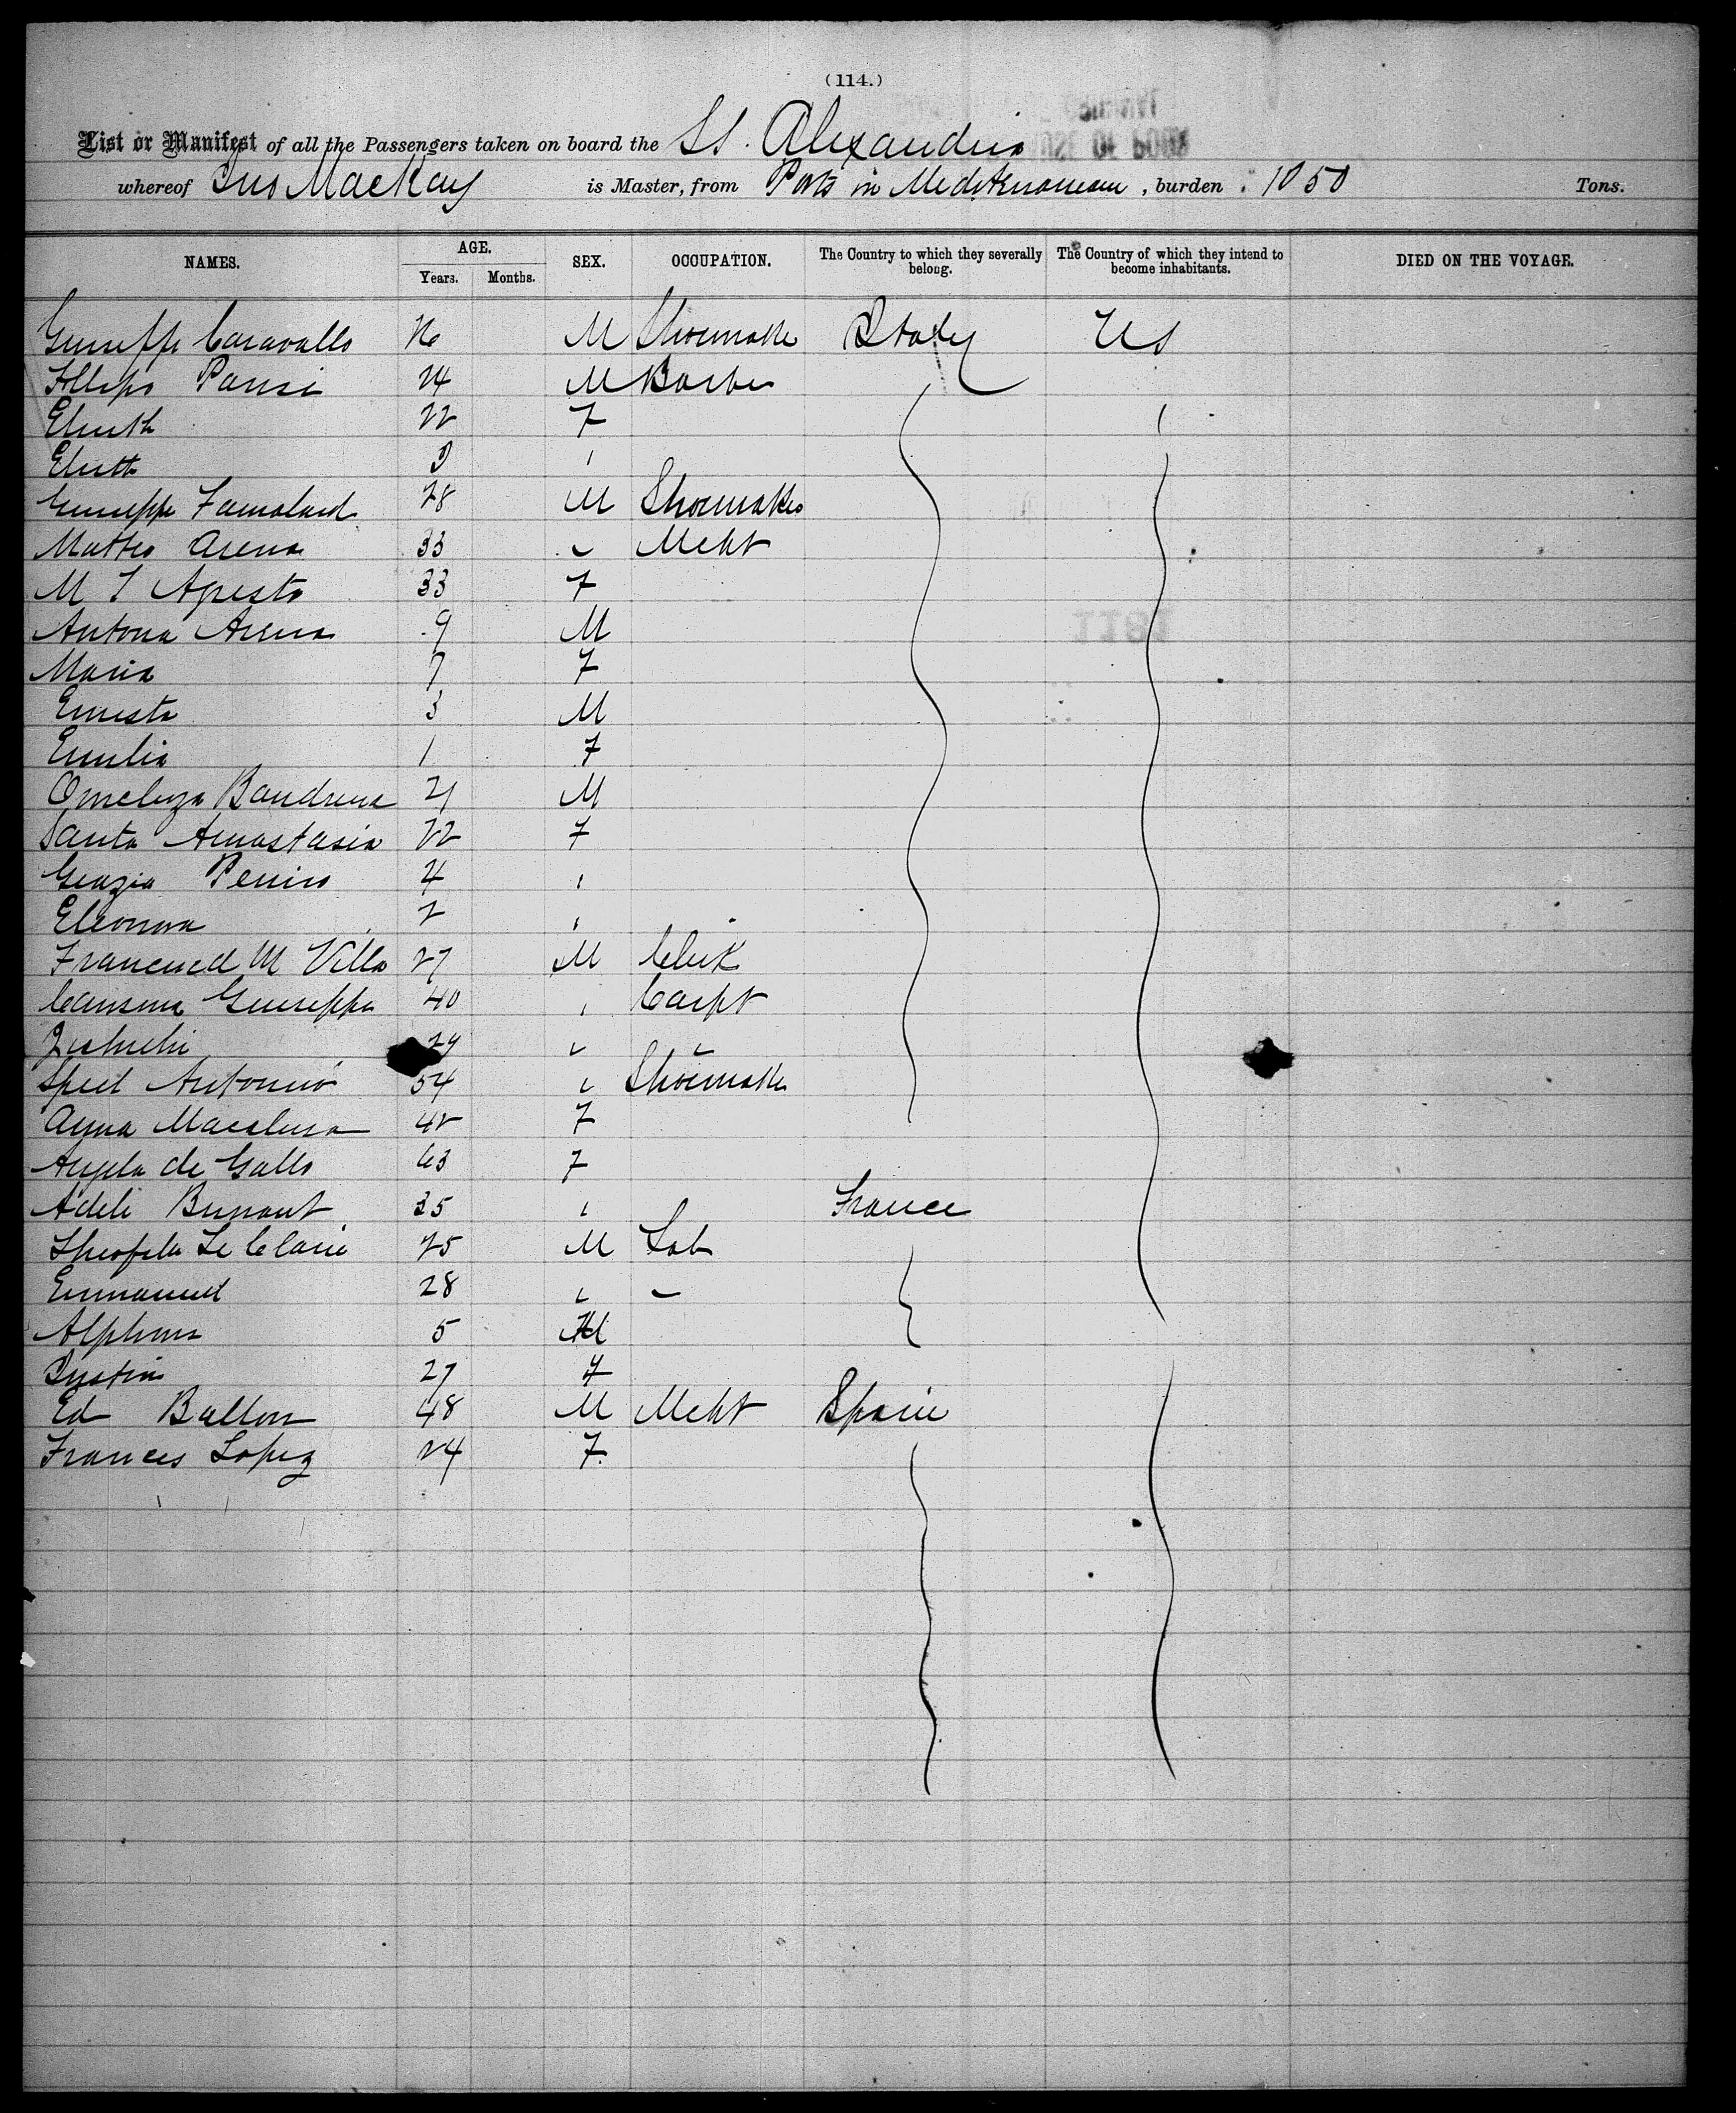 (114.)
List or Manifest of all the Passengers taken on board the SS. Alexandria
whereof Jno MacKay is Master, from Ports in Mediterranean, burden 1050 Tons.
NAMES. AGE. Years. Months. SEX. OCCUPATION. The Country to which they severally belong. The Country of which they intend to become inhabitants. DIED ON THE VOYAGE.
Giuseppe Caravallo M Shoemaker Italy US
24 M Barber
22 F
Giuseppe 28 M Shoemaker
Matteo Arena 33 " Mcht
M T Agresto 33 F
Antona Arena 9 M
Maria 7 F
Ernesto 3 M
Emilia 1 F
21 M
Santa Annastasia 22 F
Grazia 4 "
Eleonora 2 "
M Villa 27 M Clerk
Giuseppe 40 " Carpt
29 " "
Antonio 54 " Shoemaker
Anna Macalusa 42 F
Angela de Gallo 63 F
Adele 35 " France
Theofile Le Claire 25 M Lab
Emmanuel 28 " "
Alphons 5 M
Justin 27 F
Ed Ballon 48 M Mcht Spain
Frances Lopez 24 F.